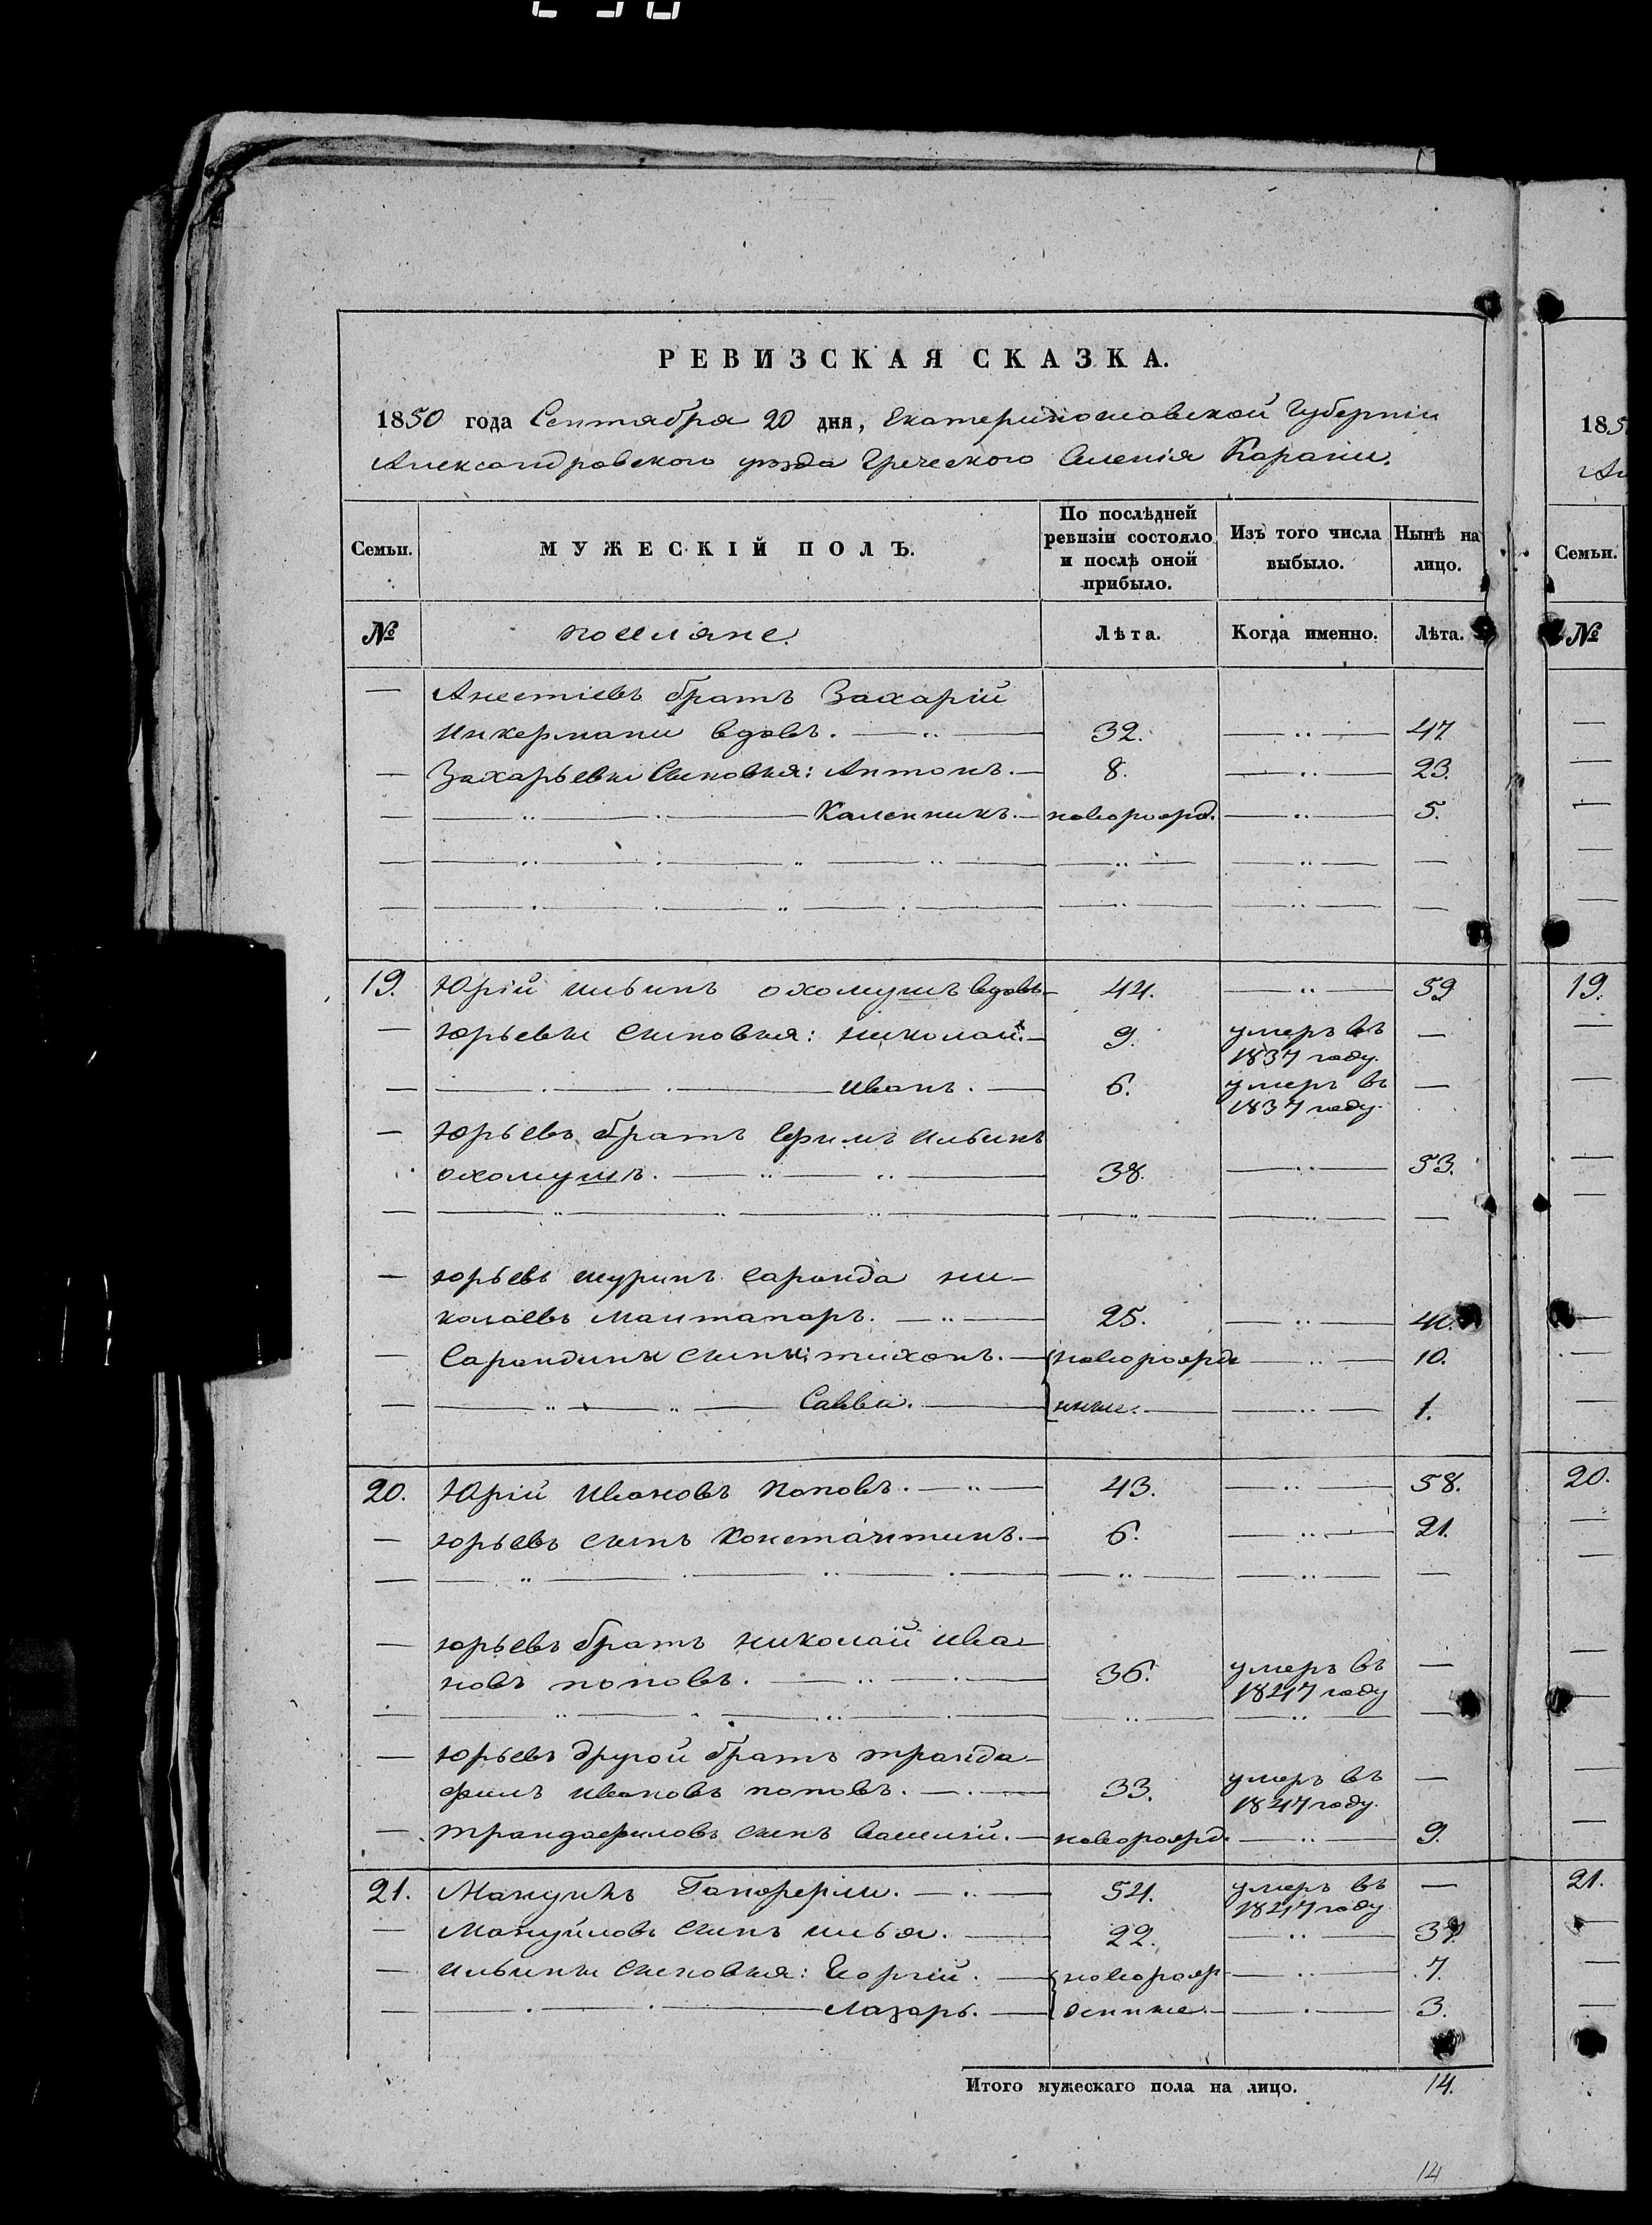 РЕВИЗСКАЯ СКАЗКА.
1850 года Сентября 20 дня, Екатеринославской Губерніи
Александровского уѣзда Греческого Селенія Карани.
Семьи. МУЖЕСКІЙ ПОЛЪ. По послѣдней ревизіи состояло и послѣ оной прибыло. Изъ того числа выбыло. Нынѣ на лицо.
№ поселяне. Лѣта. Когда именно. Лѣта.
— Анестіевъ братъ Захарій
Инкермани вдовъ. 32. — 47.
— Захарьевы Сыновья: Антонъ. 8. — 23.
— Каленникъ. новорожд. — 5.
19. Юрій Ильинъ Охомушъ вдовъ 44. — 59
— Юрьевы Сыновья: Николай. 9. умеръ въ 1837 году. —
— Иванъ. 6. умеръ въ 1837 году. —
— Юрьевъ братъ Ефимъ Ильинъ
Охомушъ. 38. — 53.
— Юрьевъ шуринъ Саранда Ни-
колаевъ Маштапаръ. 25. — 40.
— Сарандины сыны: Тихонъ. новорожде — 10.
— Савва. нные. — 1.
20. Юрій Ивановъ Поповъ. 43. — 58.
— Юрьевъ сынъ Константинъ. 6. — 21.
— Юрьевъ братъ Николай Ива-
новъ Поповъ. 36. умеръ въ 1847 году —
— Юрьевъ другой братъ Транда-
филъ Ивановъ Поповъ. 33. умеръ въ 1847 году. —
— Трандафиловъ сынъ Василій. новорожд. — 9.
21. Мануилъ 54. умеръ въ 1847 году —
— Мануйловъ сынъ Илья. 22. — 37.
— Ильины Сыновья: Георгій. новорож — 7.
— Лазарь. денные. — 3.
Итого мужескаго пола на лицо. 14.
14
185
Ал
Семьи.
№
19.
20.
21.